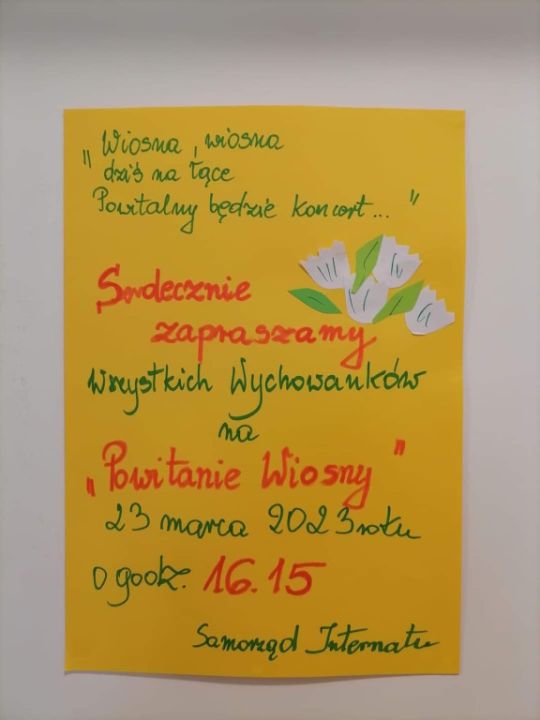 „Wiosna, wiosna
dziś na łące
Powitalny będzie koncert..."
Serdecznie
zapraszamy
wszystkich Wychowanków
na
„Powitanie Wiosny"
23 marca 2023 roku
o godz. 16.15
Samorząd Internatu